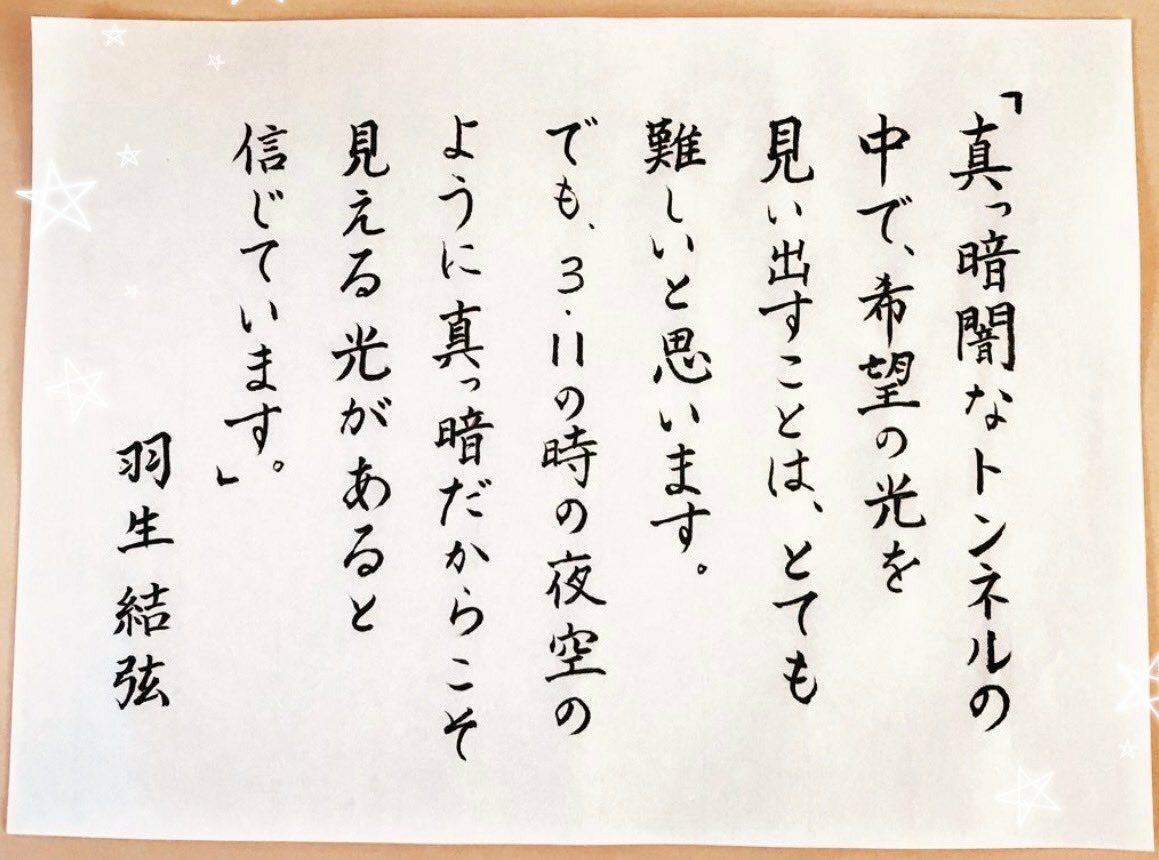 「真っ暗闇なトンネルの
中で、希望の光を
見い出すことは、とても
難しいと思います。
でも、3.11の時の夜空の
ように真っ暗だからこそ
見える光があると
信じています。」
羽生結弦